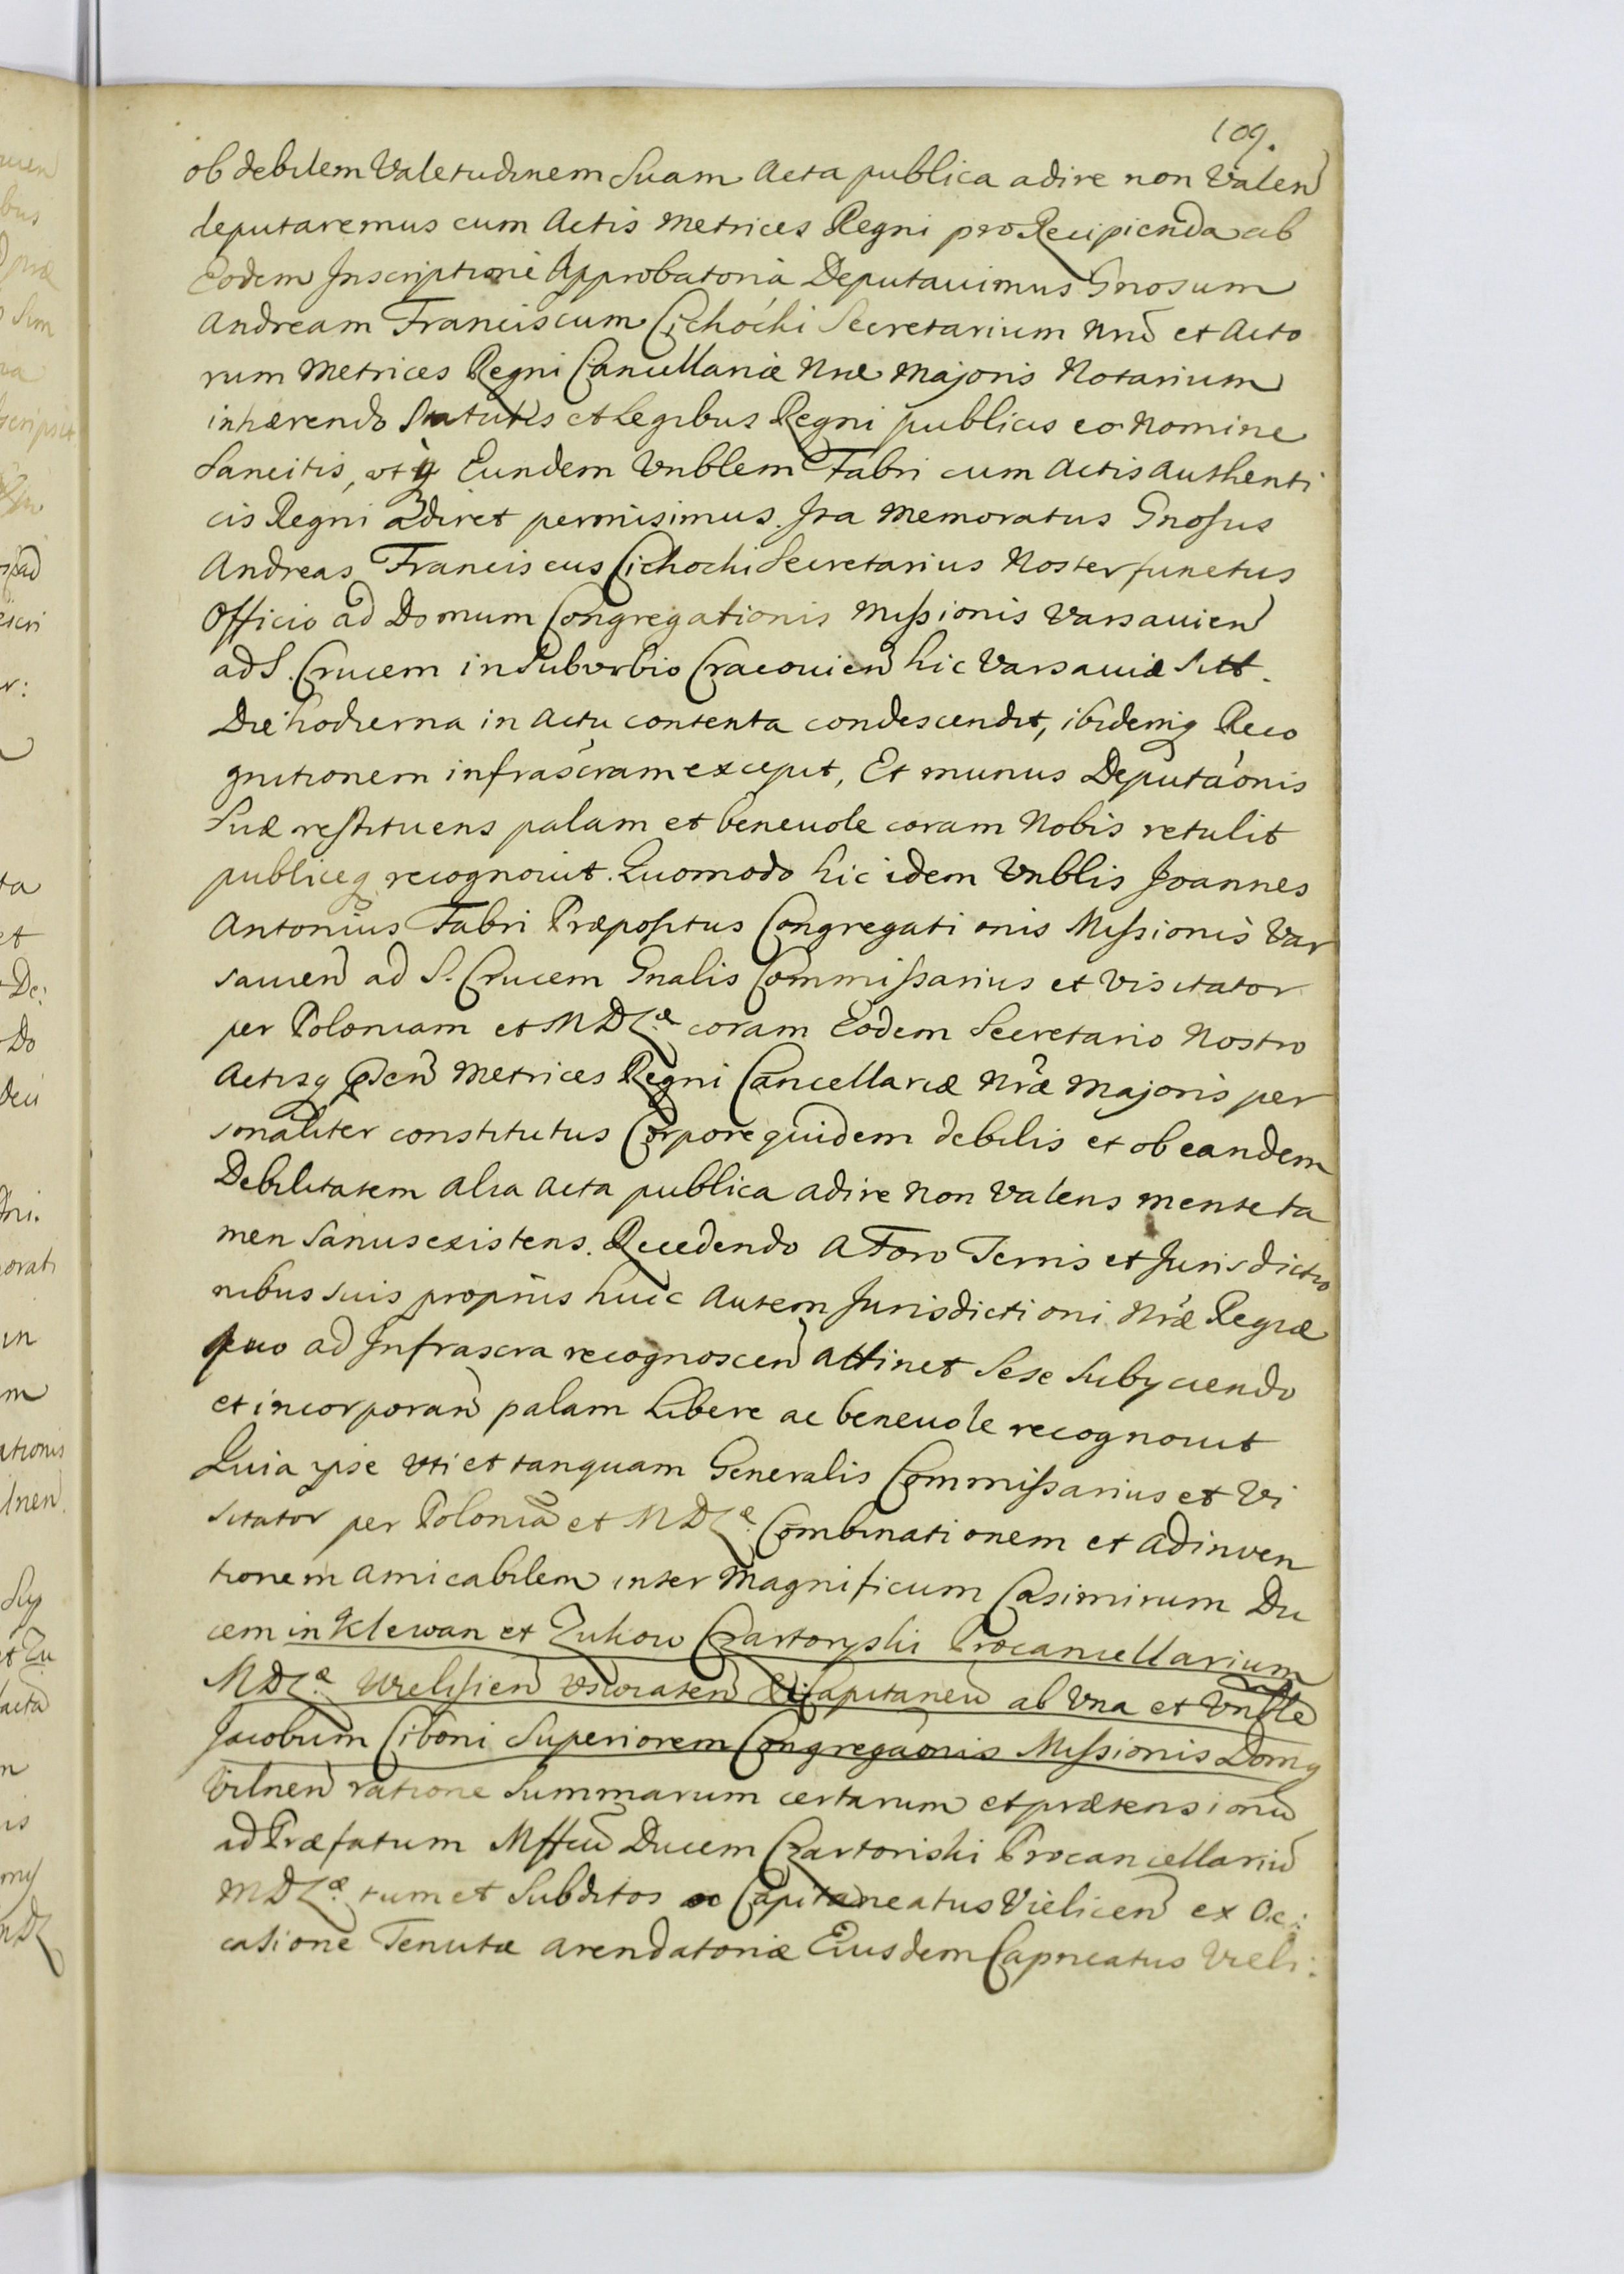 109.
ob debilem Valetudinem Suam Acta publica adire non Valen
deputaremus cum Actis Metrices Regni pro Recipienda ab
Eodem Inscriptione Approbatoria Deputauimus Gnosum
Andream Franciscum Cichocki Secretarium Nrũ et Acto
rum Metrices Regni Cancellariæ Nræ Majoris Notarium
inhærendo Statutis et Legibus Regni publicis eo Nomine
Sancitis, ut Eundem Vnblem Fabri cum Actis Authenti
cis Regni adiret permisimus. Ita Memoratus Gnosus
Andreas Franciscus Cichocki Secretarius Noster functus
Officio ad Domum Congregationis Missionis Varsauien
ad S. Crucem in Suburbio Cracouien hic Varsauiæ Sitt.
Die hodierna in Actu contenta condescendit, ibidemq Reco
gnitionem infrascram excepit, Et munus Deputaonis
Suæ restituens palam et beneuole coram Nobis retulit
publiceq recognouit. Quomodo hic idem Vnblis Joannes
Antonius Fabri Præpositus Congregationis Missionis Var
sauien ad S. Crucem Gnalis Commissarius et Visitator
per Poloniam et MDLæ coram Eodem Secretario Nostro
Actisq pñtĩ Metrices Regni Cancellariæ Nræ Majoris per
sonaliter constitutus Corpore quidem debilis et ob eandem
Debilitatem alia Acta publica adire Non Valens mente ta
men Sanus existens. Recedendo A Foro Terris et Jurisdictio
nibus suis propriis huic Autem Jurisdictioni Nræ Regiæ
quo ad Infrascra recognoscen attinet Sese Subyciendo
et incorporan palam Libere ac beneuole recognouit
Quia ipse Vti et tanquam Generalis Commissarius et Vi
sitator per Poloniã et MDLæ Combinationem et adinuen
tionem amicabilem inter Magnificum Casimirum Du
cem in Klewan et Zukow Czartoryski Procancellarium
MDLæ Wielisien Vswiaten Capitaneũ ab Vna et Vnble
Jacobum Ciboni Superiorem Congregaonis Missionis Domq
Vilnen ratione Summarum certarum et prætensionũ
ad Præfatum Mffcũ Ducem Czartoriski Procancellariũ
MDLæ tum et Subditos Capitaneatus Vielicen ex Oc:
casione Tenutæ arendatoriæ Eiusdem Capneatus Vieli: